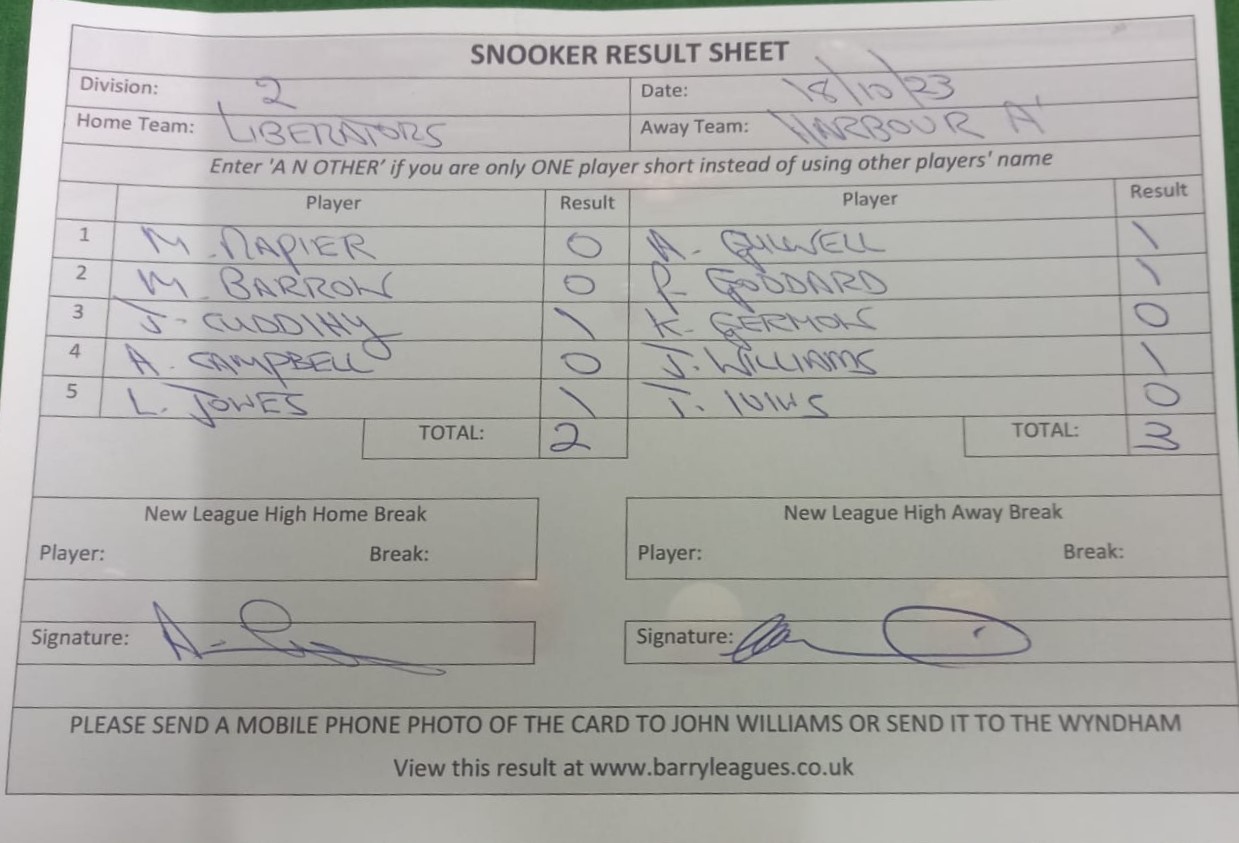 SNOOKER RESULT SHEET
Division: 2 Date: 18/10/23
Home Team: LIBERATORS Away Team: HARBOUR A'
Enter 'A N OTHER' if you are only ONE player short instead of using other players' name
Player Result Player Result
1 M. NAPIER 0 A. GULWELL 1
2 M. BARRON 0 P. GODDARD 1
3 J. CUDDIHY 1 K. GERMON 0
4 A. CAMPBELL 0 J. WILLIAMS 1
5 L. JONES 1 T. 0
TOTAL: 2 TOTAL: 3
New League High Home Break New League High Away Break
Player: Break: Player: Break:
Signature: Signature:
PLEASE SEND A MOBILE PHONE PHOTO OF THE CARD TO JOHN WILLIAMS OR SEND IT TO THE WYNDHAM
View this result at www.barryleagues.co.uk